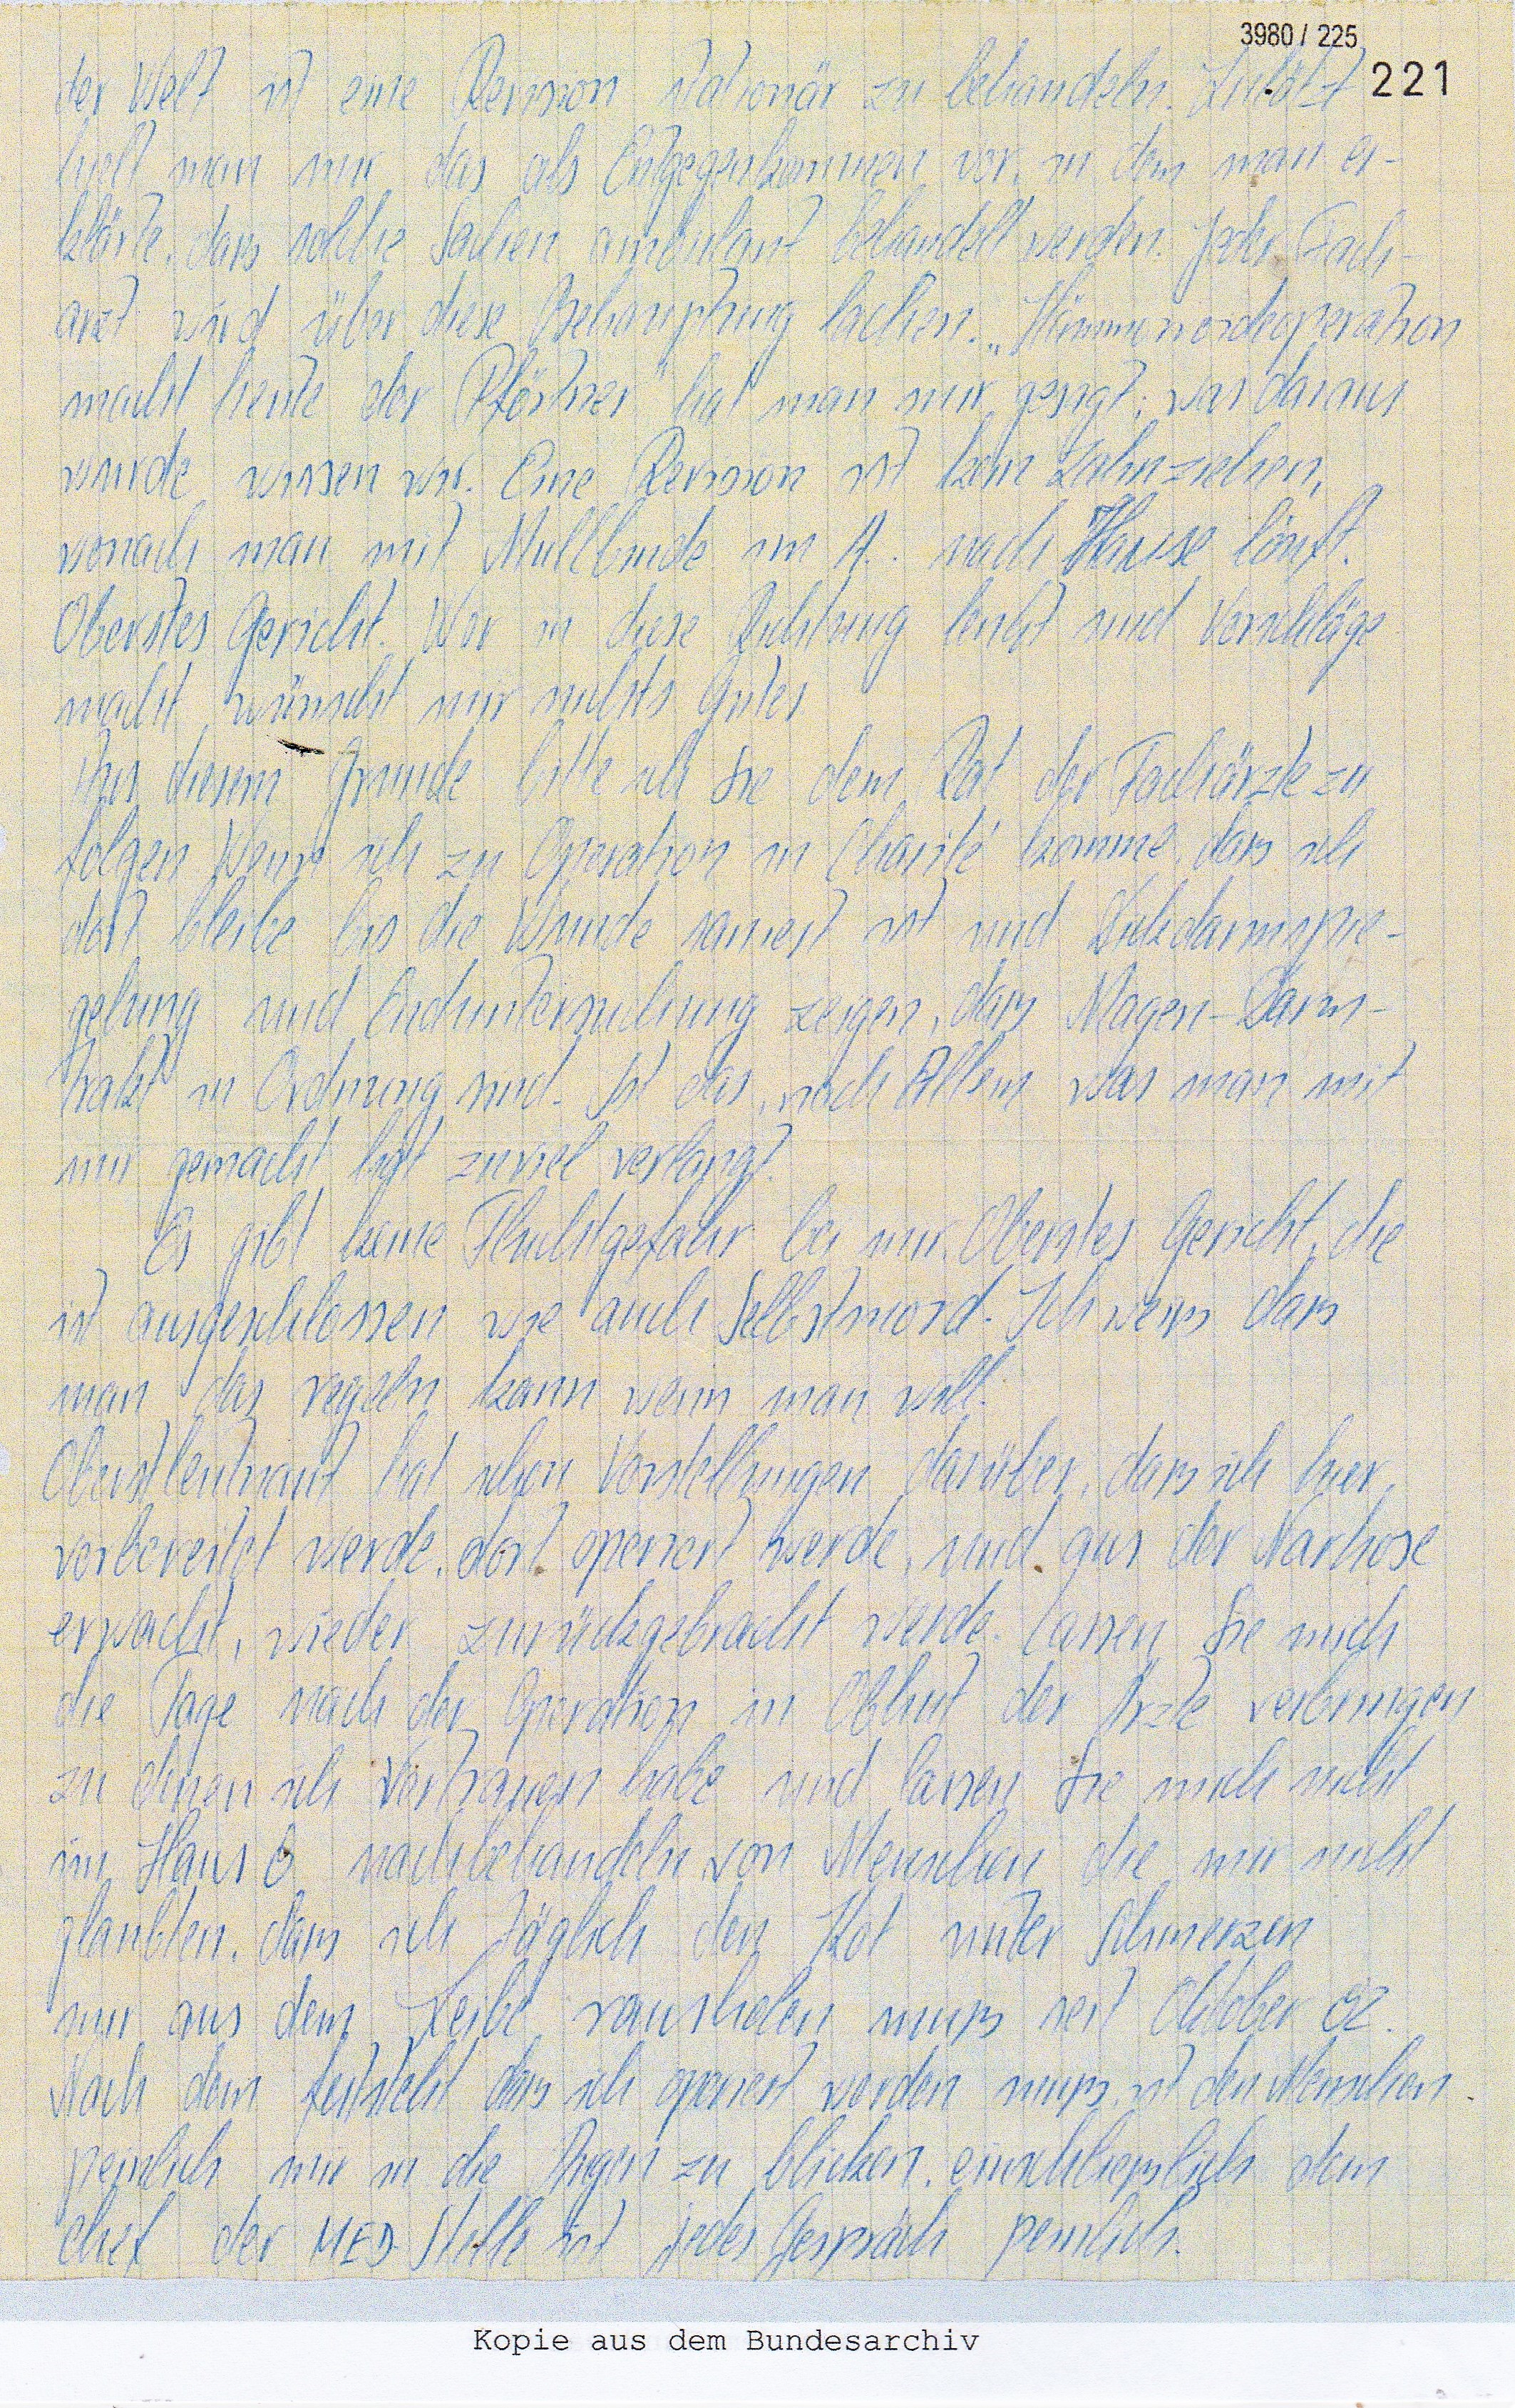 3980 / 225
221
der Welt ist eine Revision stationär zu behandeln. Zuletzt
hielt man mir das als Entgegenkommen vor, in dem man er-
klärte, dass solche Sachen ambulant behandelt werden. Jeder Fach-
arzt wird über diese Behauptung lachen. „Hämmorroideoperation
macht heute der Pförtner" hat man mir gesagt; was daraus
wurde wissen wir. Eine Revision ist kein Zahnziehen,
wonach man mit Mullbinde im A.. nach Hause läuft.
Oberstes Gericht. Wer in diese Richtung lenkt und Vorschläge
macht, wünscht mir nichts Gutes
Aus diesem Grunde bitte ich Sie dem Rat der Fachärzte zu
folgen Wenn ich zu Operation in Charité komme, dass ich
dort bleibe bis die Wunde saniert ist und Dickdarmspie-
gelung und Enduntersuchung zeigen, dass Magen-Darm-
trakt in Ordnung sind. Ist das, nach Allem was man mit
mir gemacht hat zuviel verlangt?
Es gibt keine Fluchtgefahr bei mir. Oberstes Gericht, die
ist ausgeschlossen wie auch Selbstmord. Ich weiss dass
man das regeln kann wenn man will.
Oberstleutnant hat schon Vorstellungen darüber, dass ich hier
vorbereitet werde, dort operiert werde, und aus der Narkose
erwacht, wieder zurückgebracht werde. Lassen Sie mich
die Tage nach der Operation in Obhut der Ärzte verbringen
zu denen ich Vertrauen habe und lassen Sie mich nicht
im Haus 8 nachbehandeln von Menschen die mir nicht
glaubten, dass ich täglich den Kot unter Schmerzen
mir aus dem Leibe rausholen muss seit Oktober 82.
Nach dem feststeht dass ich operiert werden muss, ist den Menschen
peinlich mir in die Augen zu blicken, einschliesslich dem
Chef der MED Stelle ist jedes Gespräch peinlich.
Kopie aus dem Bundesarchiv